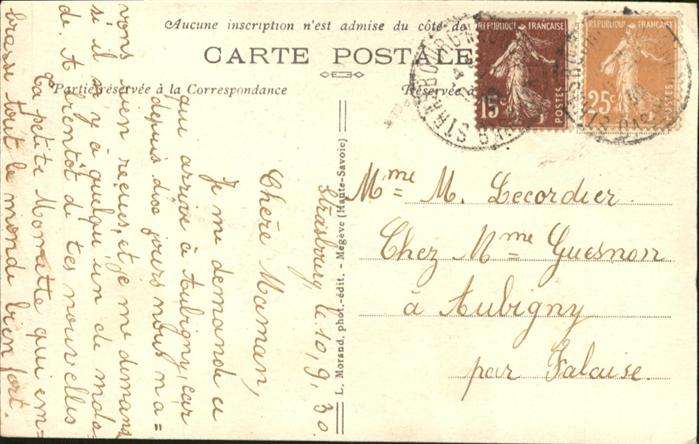 Aucune inscription n'est admise du côté de
CARTE POSTALE
Partie réservée à la Correspondance
Réservée à
RÉPUBLIQUE FRANÇAISE
15c
POSTES
FRANÇAISE
25c
POSTES
STRASBOURG
L. Morand, phot.-édit. - Megève (Haute-Savoie)
Strasbourg, le 10, 9, 30.
Chère Maman,
Je me demande ce
qui arrive à Aubigny, car
depuis dix jours nous n'a=
vons rien reçues, et je me demande
si il n'y a quelqu'un de mala-
de. A bientôt de tes nouvelles
Ta petite Monette qui em-
brasse tout le monde bien fort.
Mme M. Lecordier
Chez Mme Guesnon
à Aubigny
par Falaise.